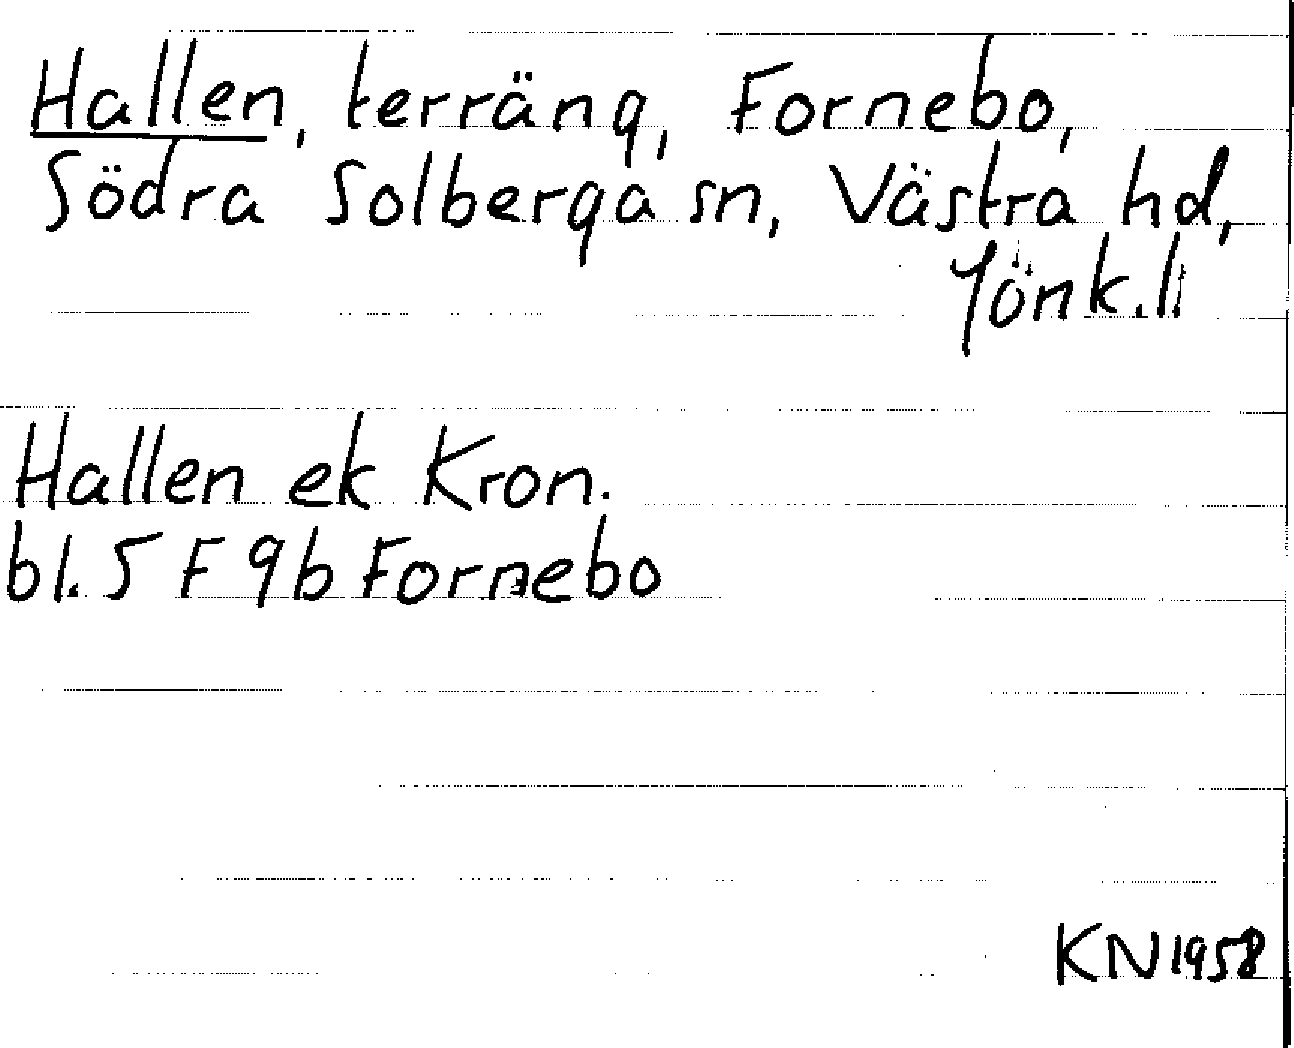 Hallen, terräng, Fornebo,
Södra Solberga sn, Västra hd,
Jönk.l:
Hallen ek Kron.
bl. 5 F 9b Fornebo
KN 1958